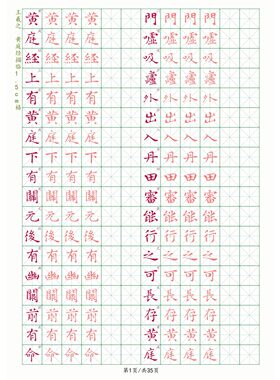 王羲之 黄庭经描临1.5cm格
黃庭經上有黃庭下有關元後有幽闕前有命
黃庭經上有黃庭下有關元後有幽闕前有命
黃庭經上有黃庭下有關元後有幽闕前有命
黃庭經上有黃庭下有關元後有幽闕前有命
門噓吸廬外出入丹田審能行之可長存黃庭
門噓吸廬外出入丹田審能行之可長存黃庭
門噓吸廬外出入丹田審能行之可長存黃庭
門噓吸廬外出入丹田審能行之可長存黃庭
第1页/共35页